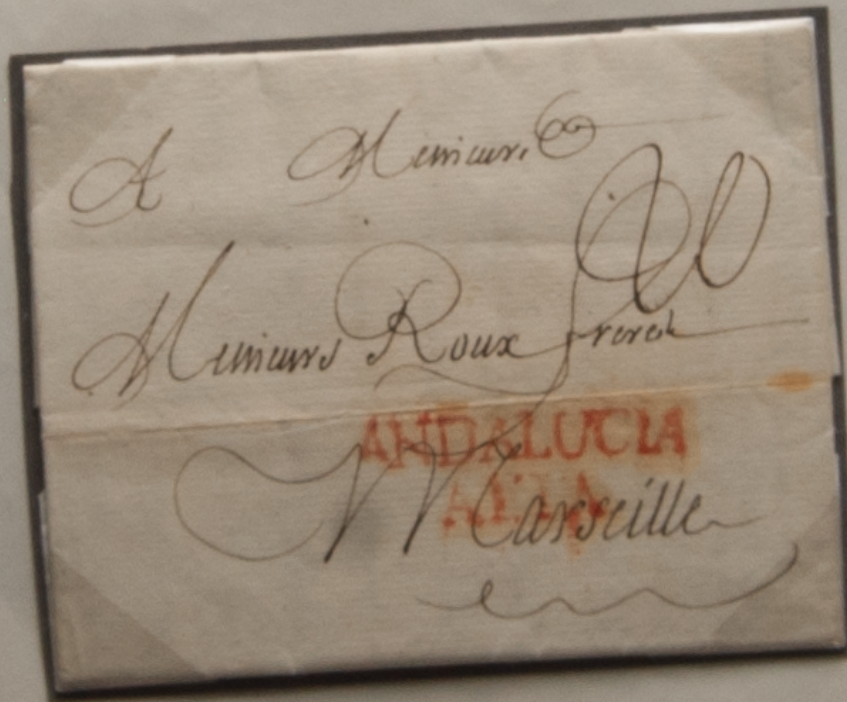 A Messieurs
20
Messieurs Roux freres
ANDALUCIA
ALTA
Marseille